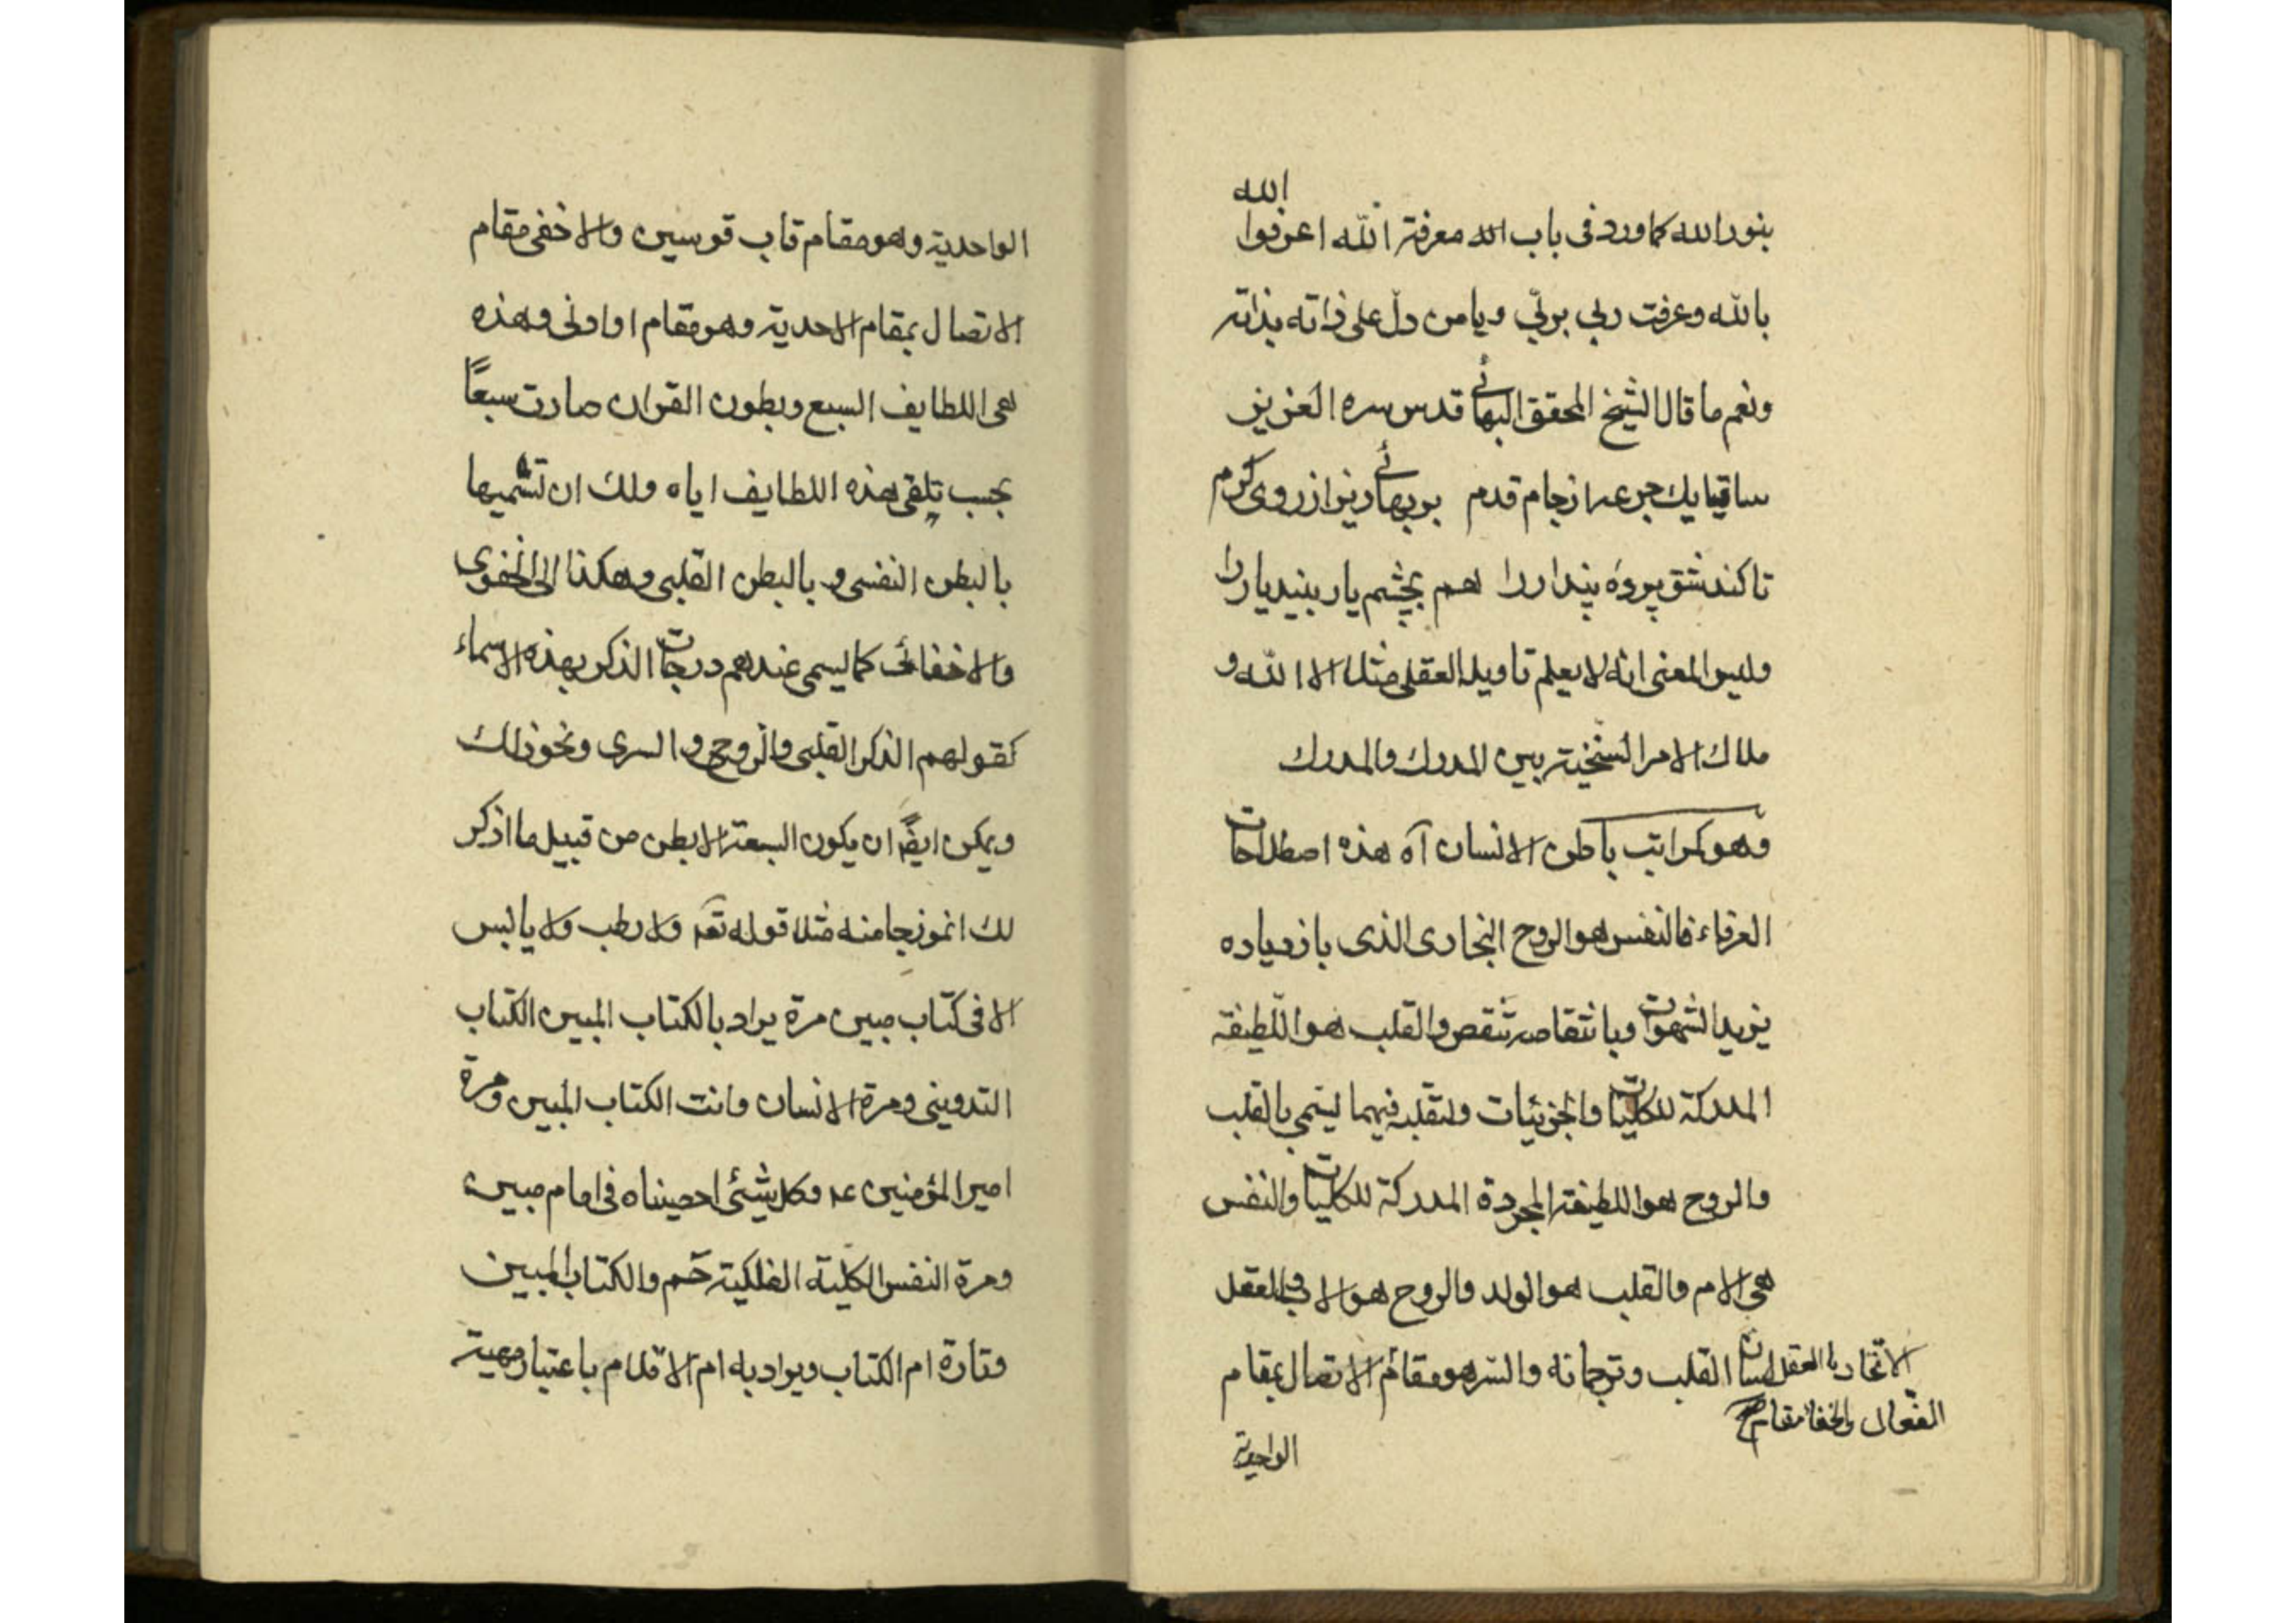 بنور الله كما ورد فى باب الله معرفة الله اعرفوا الله
بالله وعرفت ربي بربّي ويا من دلّ على ذاته بذاته
ونعم ما قال الشيخ المحقق البهائي قدس سره العزيز
ساقيا يك جرعه از جام قدم بر بهائي ريز از روى كرم
تا كند شق پرده پندار را هم بچشم يار بيند يار را
وليس المعنى انه لا يعلم تاويله العقلى مثلا الا الله و
ملاك الامر السنخية بين المدرك والمدرك
وهو كمراتب باطن الانسان آه هذه اصطلاحات
العرفاء فالنفس هو الروح البخارى الذى بازدياده
يزيد الشهوات وبانتقاصه تنقص والقلب هو اللّطيفة
المدركة للكليات والجزئيات ولتقلبه فيهما ليسمى بالقلب
والروح هو اللطيفة المجردة المدركة للكليات والنفس
هى الام والقلب هو الولد والروح هو الاب والعقل
لسان القلب وترجمانه والسر هو مقام الاتصال بمقام
الاتحاد بالعقل
الفعال والخفا مقام
الواحدية
الواحدية وهو مقام قاب قوسين والاخفى مقام
الاتصال بمقام الاحدية وهو مقام او ادنى وهذه
هى اللطايف السبع وبطون القران صارت سبعًا
بحسب تلقى هذه اللطايف اياه ولك ان تسميها
بالبطن النفسى و بالبطن القلبى وهكذا الى الخفوى
والاخفائى كما يسمى عندهم درجات الذكر بهذه الاسماء
كقولهم الذكر القلبى والروحى و السرى ونحو ذلك
ويمكن ايضًا ان يكون السبعة الابطن من قبيل ما اذكر
لك انموذجا منه مثلا قوله تعه ولا رطب ولا يابس
الا فى كتاب مبين مرة يراد بالكتاب المبين الكتاب
التدوينى ومرة الانسان وانت الكتاب المبين ومرة
امير المؤمنين عه وكل شيئ احصيناه فى امام مبين
ومرة النفس الكلية الفلكية حم والكتاب المبين
وتارة ام الكتاب ويراد به ام الاقلام باعتبار مهية